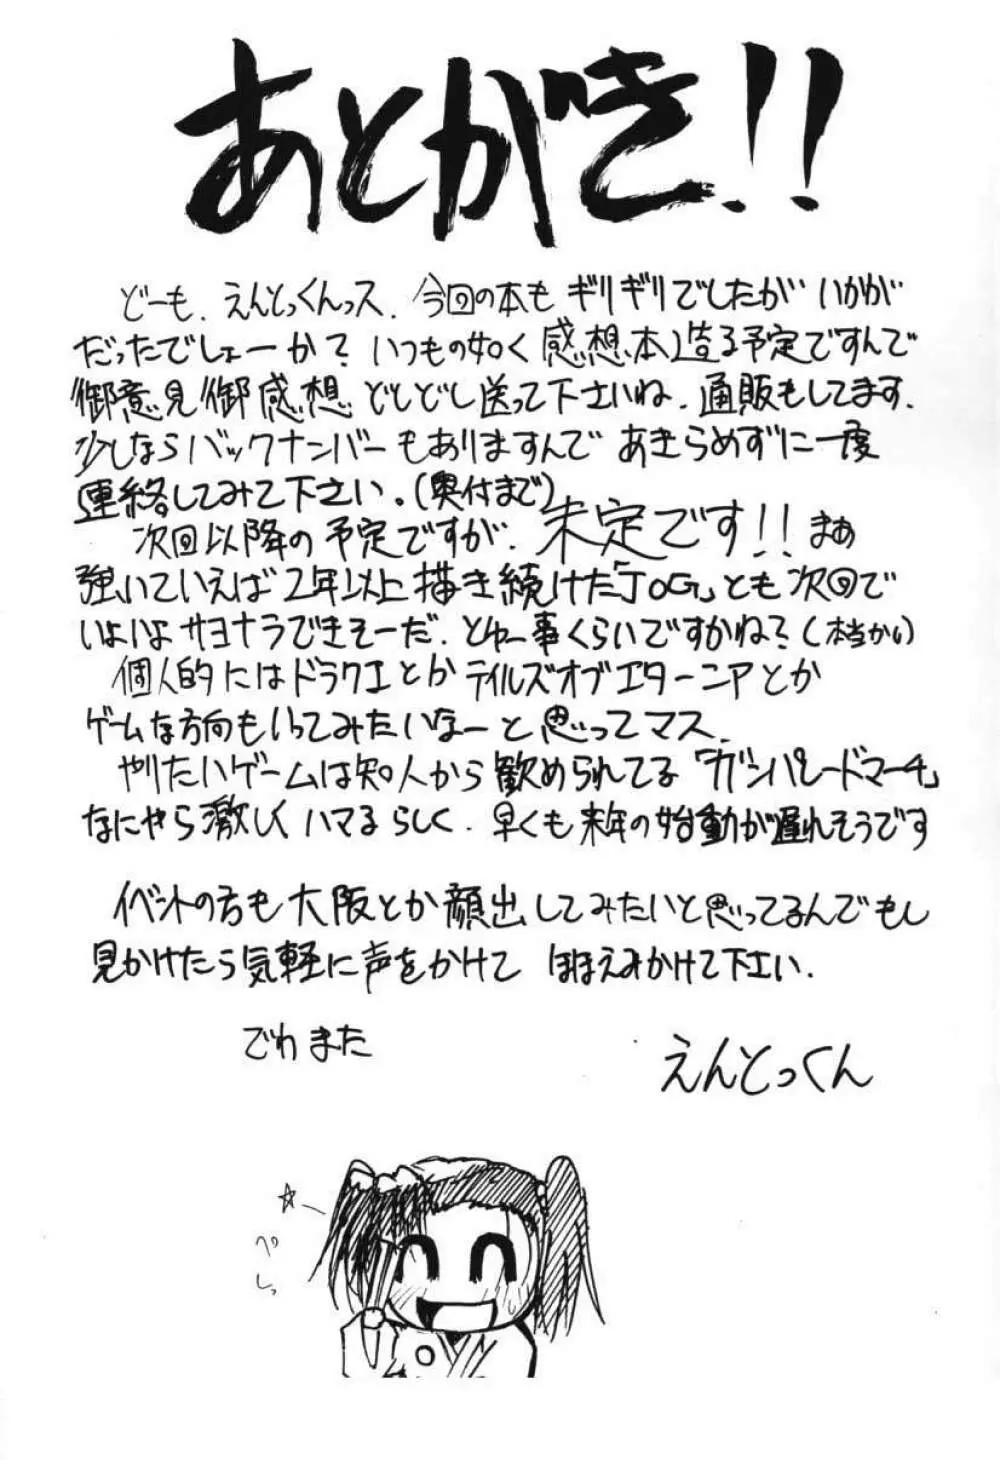 あとがき!!
どーも、えんとっくんっス、今回の本も ギリギリでしたが いかが
だったでしょーか? いつもの如く 感想本造る予定ですんで
御意見御感想 どしどし送って下さいね、通販もしてます、
少しならバックナンバーもありますんで あきらめずに一度
連絡してみて下さい。(奥付まで)
次回以降の予定ですが、未定です!! まぁ
強いていえば 2年以上描き続けた「JOG」とも 次回で
いよいよ サヨナラできそーだ、とゆー事くらいですかね?(本当かい)
個人的にはドラクエとか テイルズオブエターニアとか
ゲームな方向もいってみたいなーと 思ってマス、
やりたいゲームは知人から 歓められてる 「ガンパレードマーチ」
なにやら激しく ハマるらしく、早くも 来年の始動が遅れそうです
イベントの方も 大阪とか顔出ししてみたいと思ってるんでもし
見かけたら気軽に声をかけて ほほえみかけて下さい、
でわ また
えんとっくん
☆ー
ペ
しっ